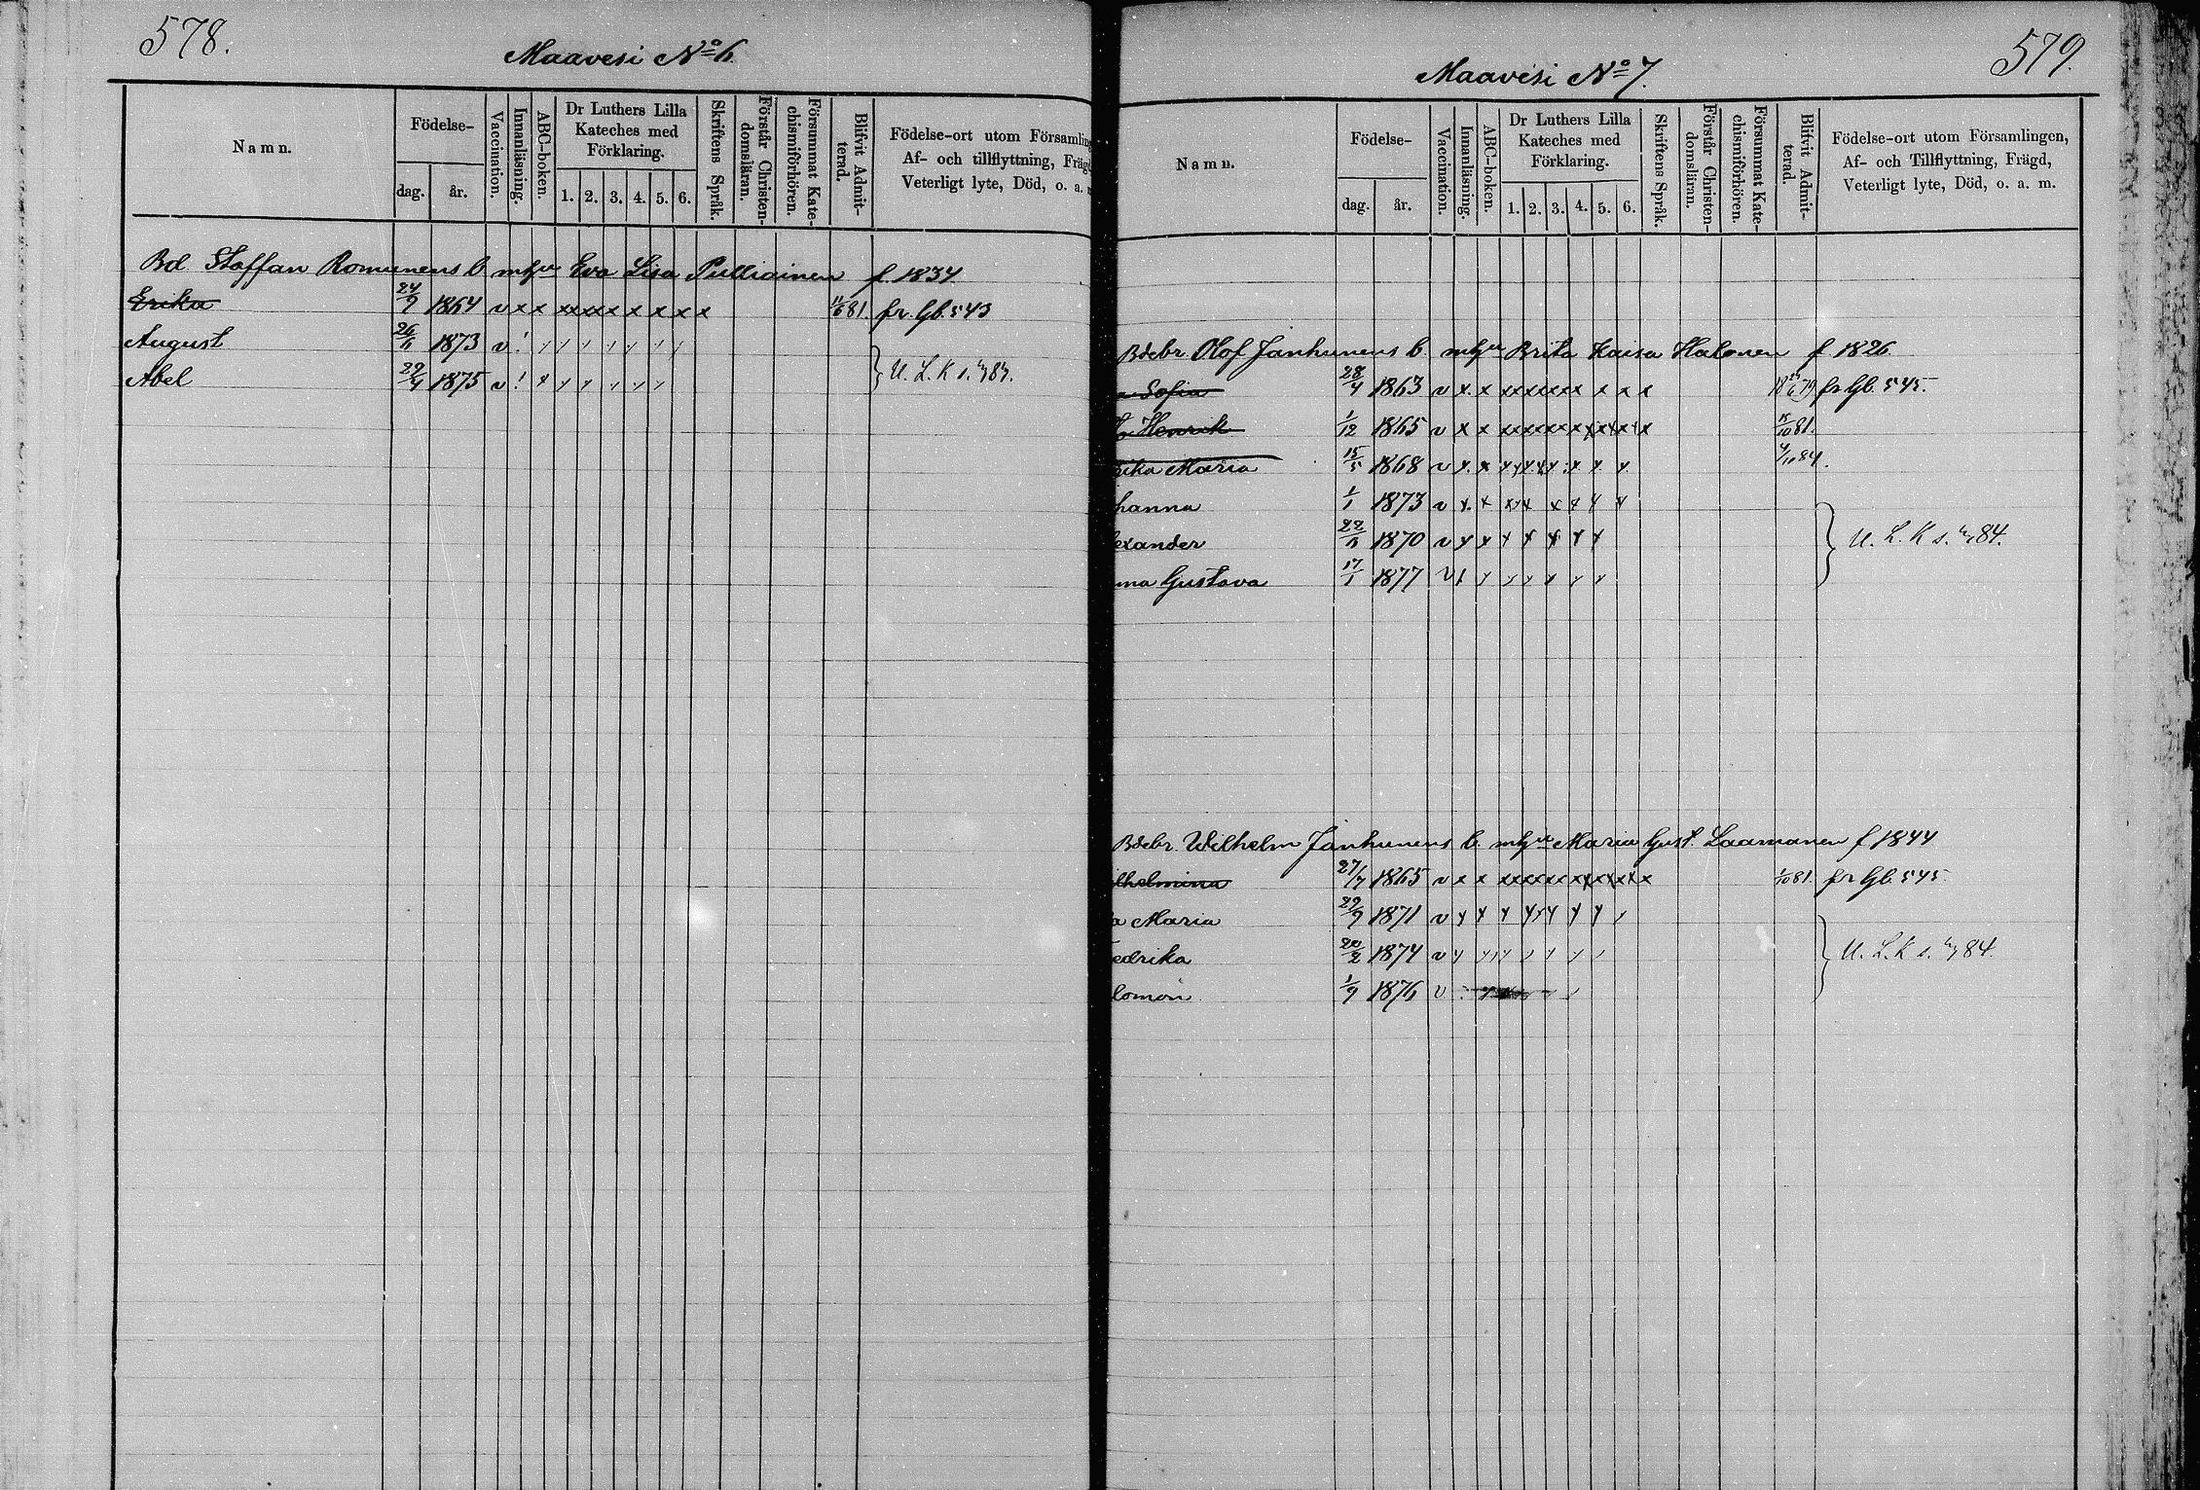 578.
Maavesi No 6.
Namn. Födelse- dag. år. Vaccination. Innanläsning. ABC-boken. Dr Luthers Lilla Kateches med Förklaring. 1. 2. 3. 4. 5. 6. Skriftens Språk. Förstår Christendomsläran. Försummat Katechismiförhören. Blifvit Admitterad. Födelse-ort utom Församling Af- och tillflyttning, Frägd Veterligt lyte, Död, o. a. m
Bd Staffan Romunens b. m hu Eva Lisa Pulliainen f. 1834
Erika 24/9 1864 v x x x x x x x x x x x 11/6 81. fr. Gb. 543
August 1873 v ! y y y y y y y
Abel 29/4 1875 v ! x y y y y y
U. L. K s. 84.
579.
Maavesi No 7.
Namn. Födelse- dag. år. Vaccination. Innanläsning. ABC-boken. Dr Luthers Lilla Kateches med Förklaring. 1. 2. 3. 4. 5. 6. Skriftens Språk. Förstår Christendomsläran. Försummat Katechismiförhören. Blifvit Admitterad. Födelse-ort utom Församlingen, Af- och Tillflyttning, Frägd, Veterligt lyte, Död, o. a. m.
Bdebr. Olof Janhunens b. m hu Brita Kaisa Halonen f 1826
a Sofia 28/4 1863 v x x x x x x x x x x x fr Gb. 545.
Henrik 1/12 1865 v x x x x x x x x x x x 15/10 81.
rika Maria 15/5 1868 v x x x x x x x x x 4/10 84.
hanna 1/1 1873 v x x x x x x x x
exander 1870 v x x x x x x x
ma Gustava 17/1 1877 v
U. L. K s. 84.
Bdebr. Wilhelm Janhunens b. m hu Maria Gust. Laamanen f 1844
ilhelmina 27/7 1865 v x x x x x x x x x x x 1/10 81. fr Gb. 545
a Maria 29/9 1871 v y y y y y y y y
edrika 20/2 1874 v y y y y y y y
lomon 1/9 1876 v
U. L. K s. 84.